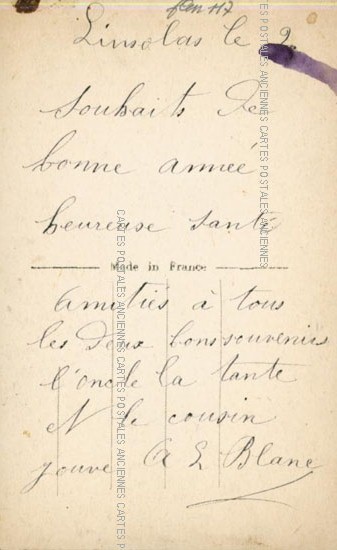 Jan 117
Linsolas le 2
Souhaits de
bonne année
heureuse santé
Made in France
Amitiés à tous
les deux bons souvenirs
l'oncle la tante
et le cousin
Jouve A E Blanc
CARTES POSTALES ANCIENNES CARTES POSTALES ANCIENNES CARTES POSTALES ANCIENNES
CARTES POSTALES ANCIENNES CARTES POSTALES ANCIENNES CARTES POSTALES ANCIENNES